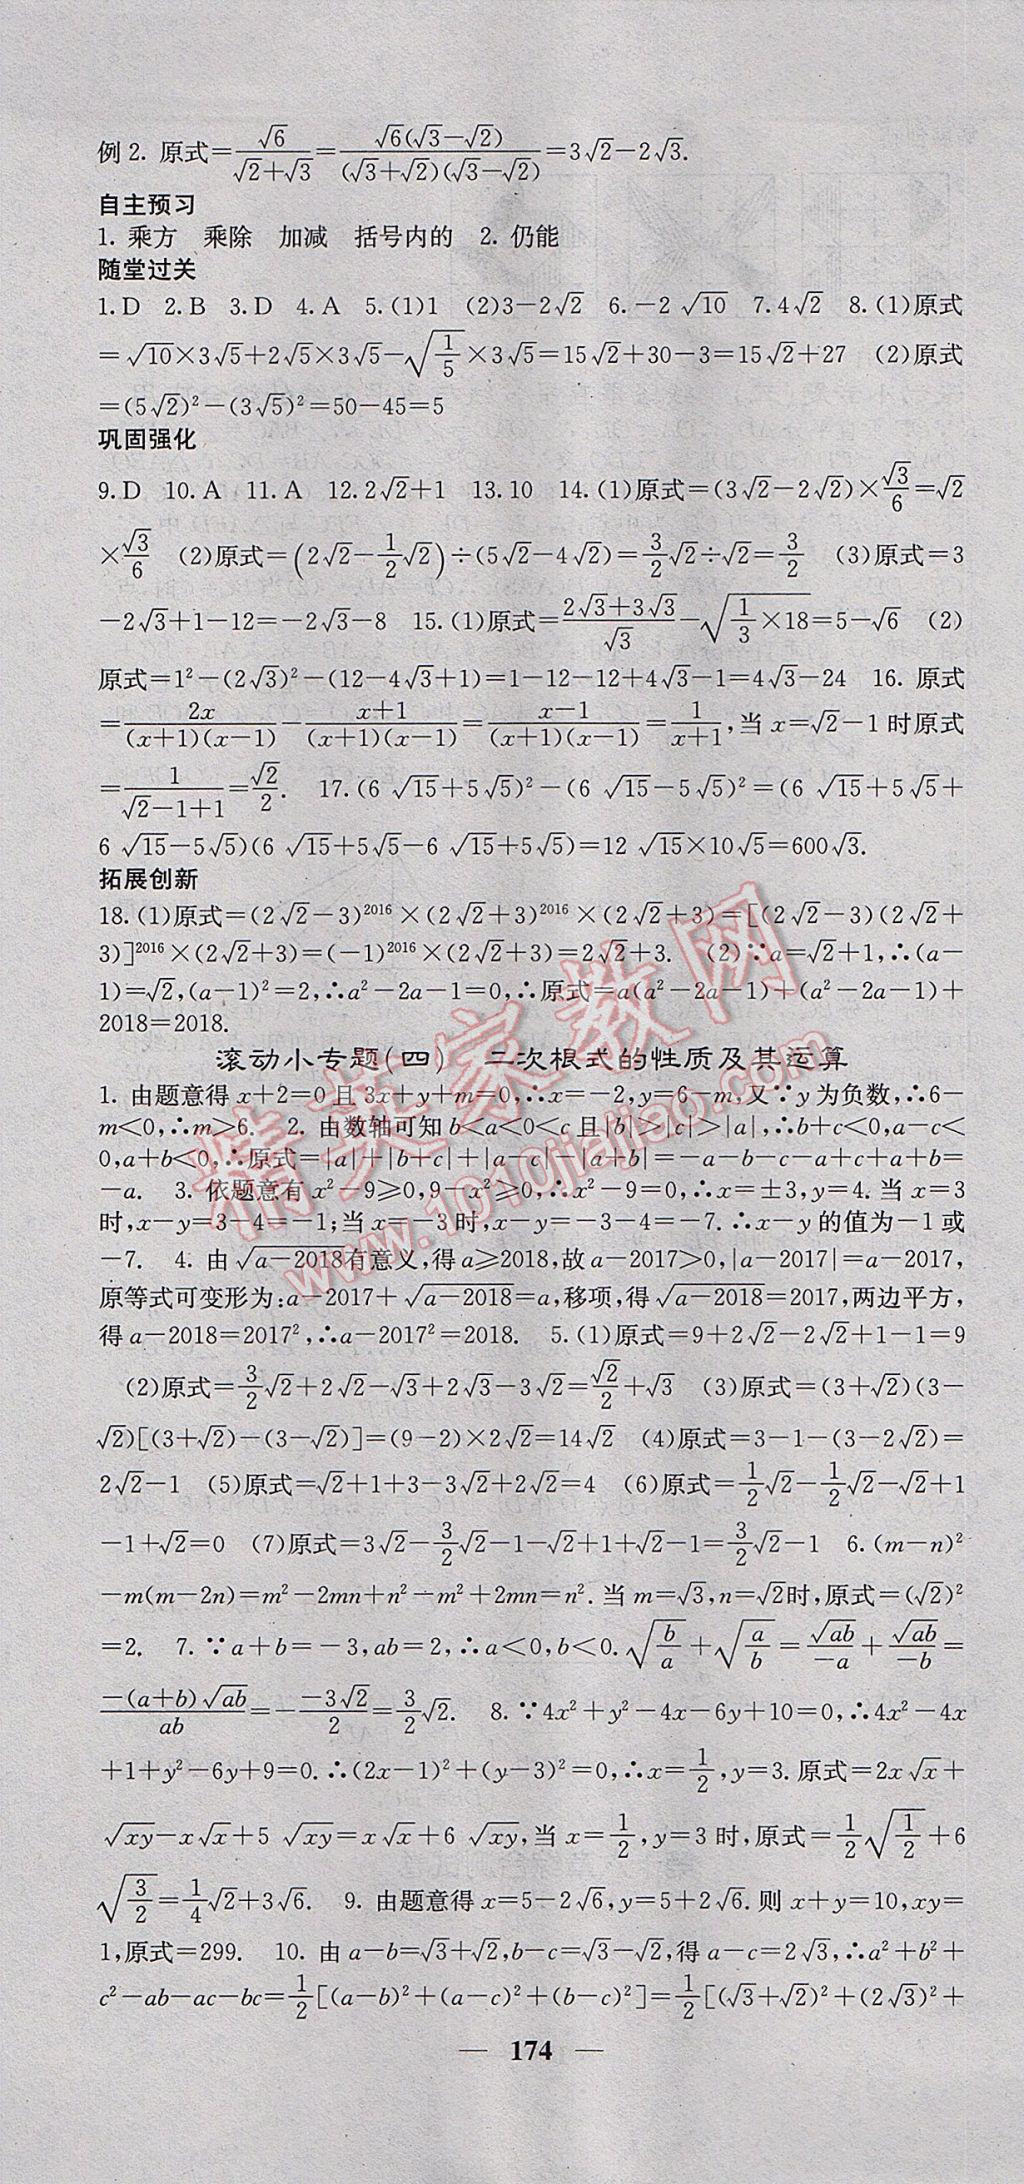 例2. 原式=√6/(√2+√3)=√6(√3-√2)/((√3+√2)(√3-√2))=3√2-2√3.
自主预习
1. 乘方 乘除 加减 括号内的 2. 仍能
随堂过关
1.D 2.B 3.D 4.A 5.(1)1 (2)3-2√2 6.-2√10 7.4√2 8.(1)原式
=√10×3√5+2√5×3√5-√(1/5)×3√5=15√2+30-3=15√2+27 (2)原式
=(5√2)²-(3√5)²=50-45=5
巩固强化
9.D 10.A 11.A 12.2√2+1 13.10 14.(1)原式=(3√2-2√2)×√3/6=√2
×√3/6 (2)原式=(2√2-1/2√2)÷(5√2-4√2)=3/2√2÷√2=3/2 (3)原式=3
-2√3+1-12=-2√3-8 15.(1)原式=(2√3+3√3)/√3-√(1/3×18)=5-√6 (2)
原式=1²-(2√3)²-(12-4√3+1)=1-12-12+4√3-1=4√3-24 16. 原式
=2x/((x+1)(x-1))-(x+1)/((x+1)(x-1))=(x-1)/((x+1)(x-1))=1/(x+1),当x=√2-1时原式
=1/(√2-1+1)=√2/2. 17.(6√15+5√5)²-(6√15-5√5)²=(6√15+5√5+
6√15-5√5)(6√15+5√5-6√15+5√5)=12√15×10√5=600√3.
拓展创新
18.(1)原式=(2√2-3)²⁰¹⁶×(2√2+3)²⁰¹⁶×(2√2+3)=[(2√2-3)(2√2+
3)]²⁰¹⁶×(2√2+3)=(-1)²⁰¹⁶×(2√2+3)=2√2+3. (2)∵a=√2+1,∴(a-
1)=√2,(a-1)²=2,∴a²-2a-1=0,∴原式=a(a²-2a-1)+(a²-2a-1)+
2018=2018.
滚动小专题(四) 二次根式的性质及其运算
1. 由题意得x+2=0且3x+y+m=0,∴x=-2,y=6-m,又∵y为负数,∴6-
m<0,∴m>6. 2. 由数轴可知b<a<0<c且|b|>|c|>|a|,∴b+c<0,a-c<
0,a+b<0,∴原式=|a|+|b+c|+|a-c|-|a+b|=-a-b-c-a+c+a+b=
-a. 3. 依题意有x²-9≥0,9-x²≥0,∴x²-9=0,∴x=±3,y=4.当x=3
时,x-y=3-4=-1;当x=-3时,x-y=-3-4=-7.∴x-y的值为-1或
-7. 4. 由√(a-2018)有意义,得a≥2018,故a-2017>0,|a-2017|=a-2017,
原等式可变形为:a-2017+√(a-2018)=a,移项,得√(a-2018)=2017,两边平方,
得a-2018=2017²,∴a-2017²=2018. 5.(1)原式=9+2√2-2√2+1-1=9
(2)原式=3/2√2+2√2-√3+2√3-3√2=√2/2+√3 (3)原式=(3+√2)(3-
√2)[(3+√2)-(3-√2)]=(9-2)×2√2=14√2 (4)原式=3-1-(3-2√2)=
2√2-1 (5)原式=√2+1+3-3√2+2√2=4 (6)原式=1/2√2-1/2√2-√2+1
-1+√2=0 (7)原式=3√2-3/2√2-1-√2+1+√2-1=3/2√2-1 6.(m-n)²
-m(m-2n)=m²-2mn+n²-m²+2mn=n².当m=√3,n=√2时,原式=(√2)²
=2. 7.∵a+b=-3,ab=2,∴a<0,b<0.√(b/a)+√(a/b)=√ab/-a+√ab/-b=
-(a+b)√ab/ab=-(-3√2)/2=3/2√2. 8.∵4x²+y²-4x-6y+10=0,∴4x²-4x
+1+y²-6y+9=0.∴(2x-1)²+(y-3)²=0,∴x=1/2,y=3.原式=2x√x+
√xy-x√x+5√xy=x√x+6√xy,当x=1/2,y=3时,原式=1/2√(1/2)+6
√(3/2)=1/4√2+3√6. 9. 由题意得x=5-2√6,y=5+2√6.则x+y=10,xy=
1,原式=299. 10. 由a-b=√3+√2,b-c=√3-√2,得a-c=2√3,∴a²+b²+
c²-ab-ac-bc=1/2[(a-b)²+(a-c)²+(b-c)²]=1/2[(√3+√2)²+(2√3)²+
— 174 —
精英家教网
www.1010jiajiao.com